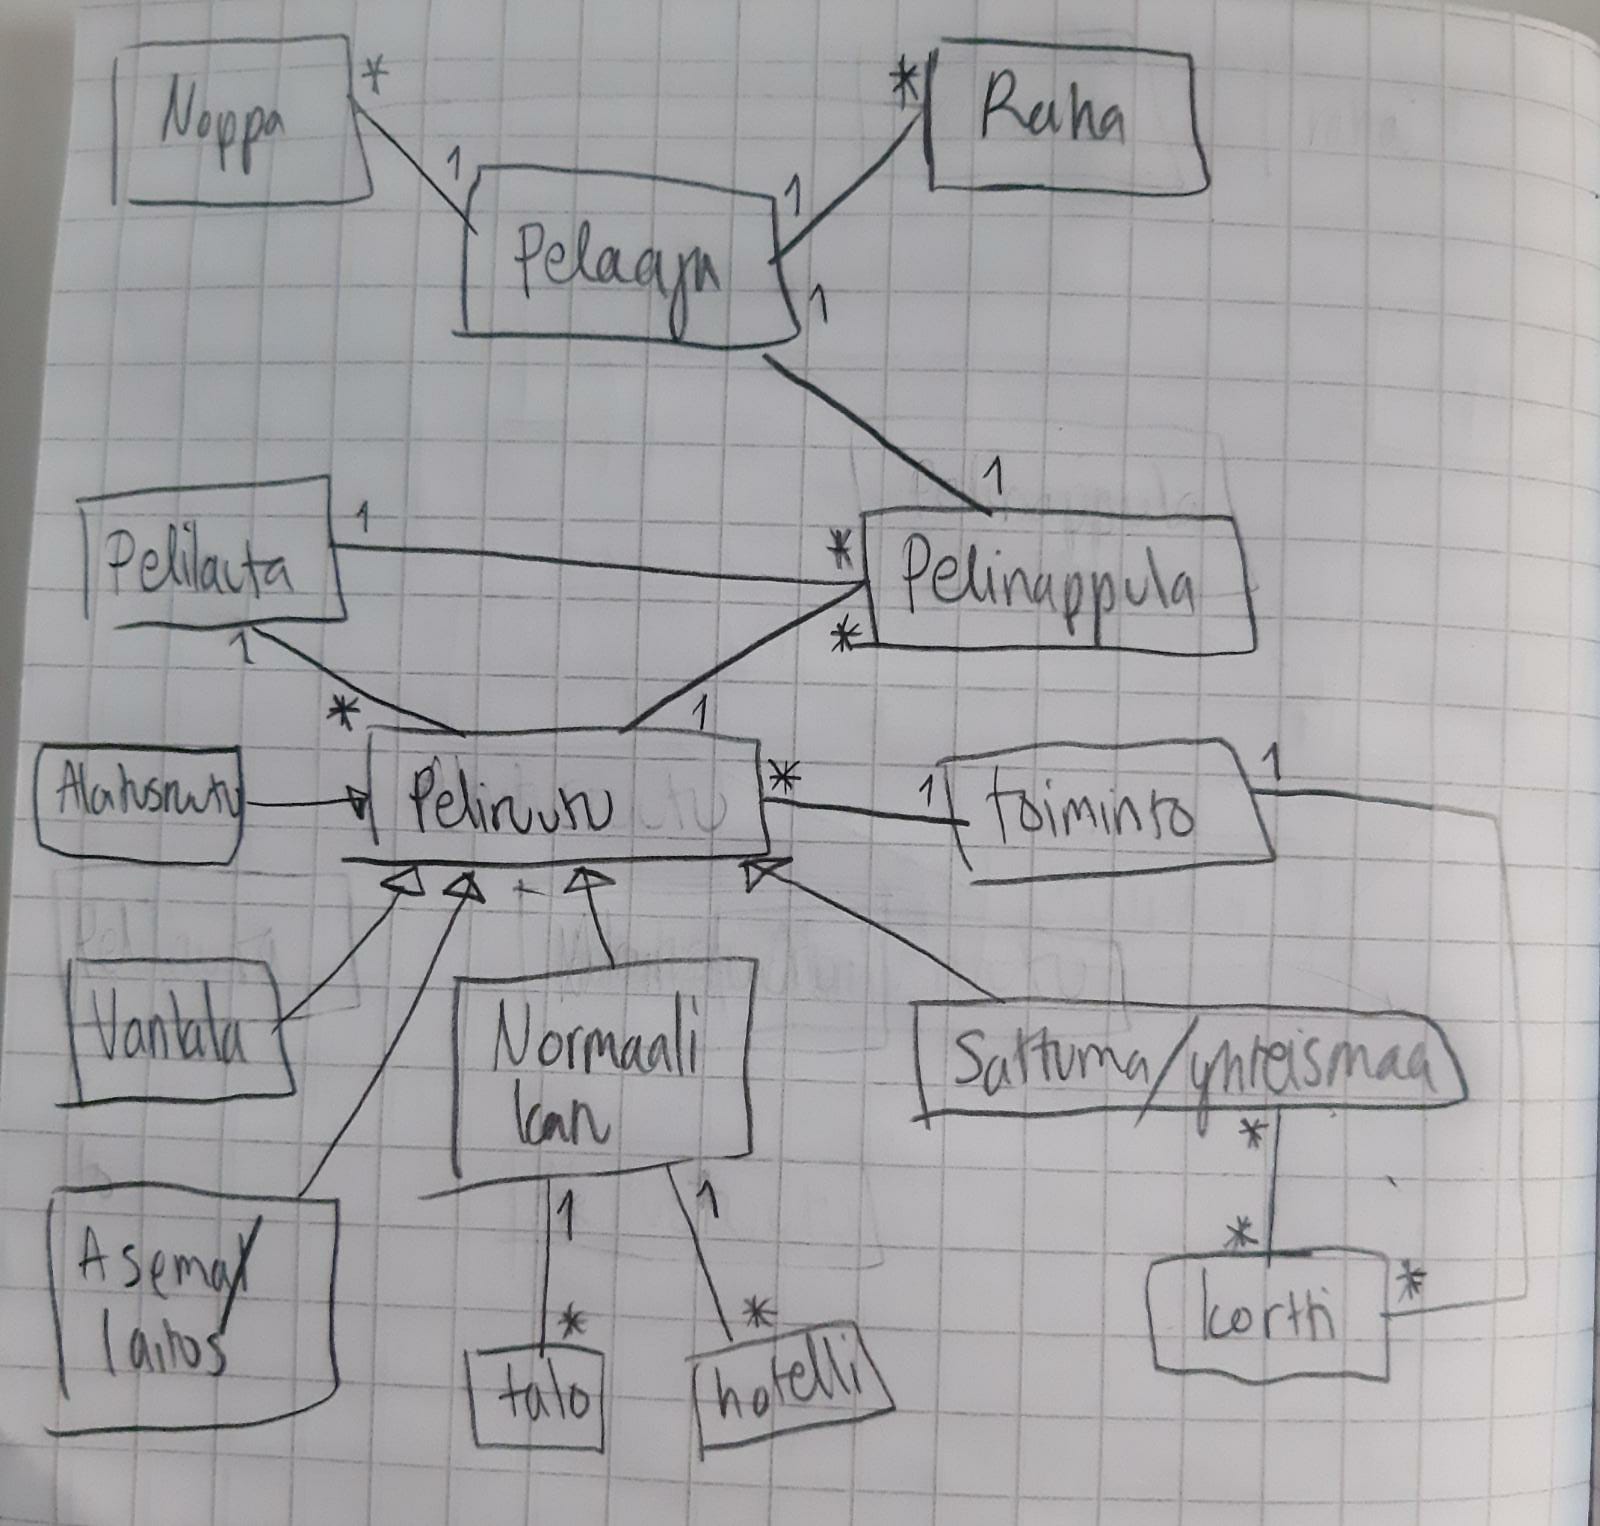 Noppa
*
1
*
Raha
1
Pelaaja
1
Pelilauta
1
1
*
Pelinappula
*
1
*
1
Aloitusruutu
Peliruutu
*
1
toiminto
1
Vankila
Normaali
katu
Sattuma/yhteismaa
*
Asema/
laitos
1
1
*
*
talo
hotelli
*
kortti
*